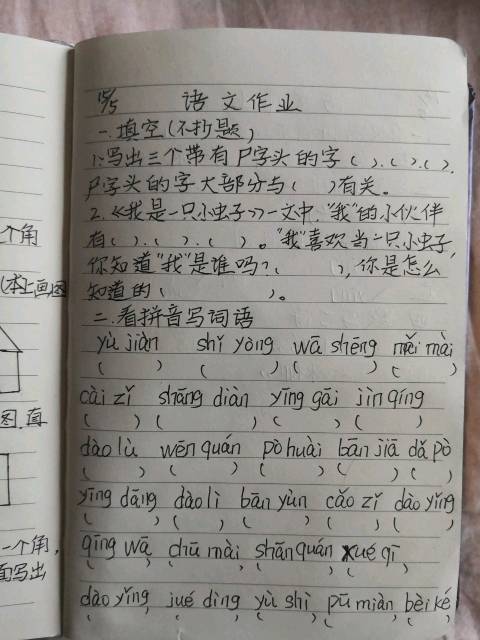 15/5 语文作业
一.填空(不抄题)
1.写出三个带有尸字头的字( )、( )、( ).
尸字头的字大部分与( )有关。
2.《我是一只小虫子》一文中,"我"的小伙伴
有( )、( )、( )。"我"喜欢当一只小虫子,
你知道"我"是谁吗?( ),你是怎么
知道的( )。
二.看拼音写词语
yù jiàn shǐ yòng wā shēng mǎi mài
( ) ( ) ( ) ( )
cài zǐ shāng diàn yīng gāi jìn qíng
( ) ( ) ( ) ( )
dào lù wēn quán pò huài bān jiā dǎ pò
( ) ( ) ( ) ( ) ( )
yīng dāng dào lǐ bān yùn cǎo zǐ dào yǐng
( ) ( ) ( ) ( ) ( )
qīng wā chū mài shān quán xué qī
( ) ( ) ( ) ( )
dào yǐng jué dìng yù shì pū miàn bèi ké
个角
(本上画图
图.直
一个角,
面写出